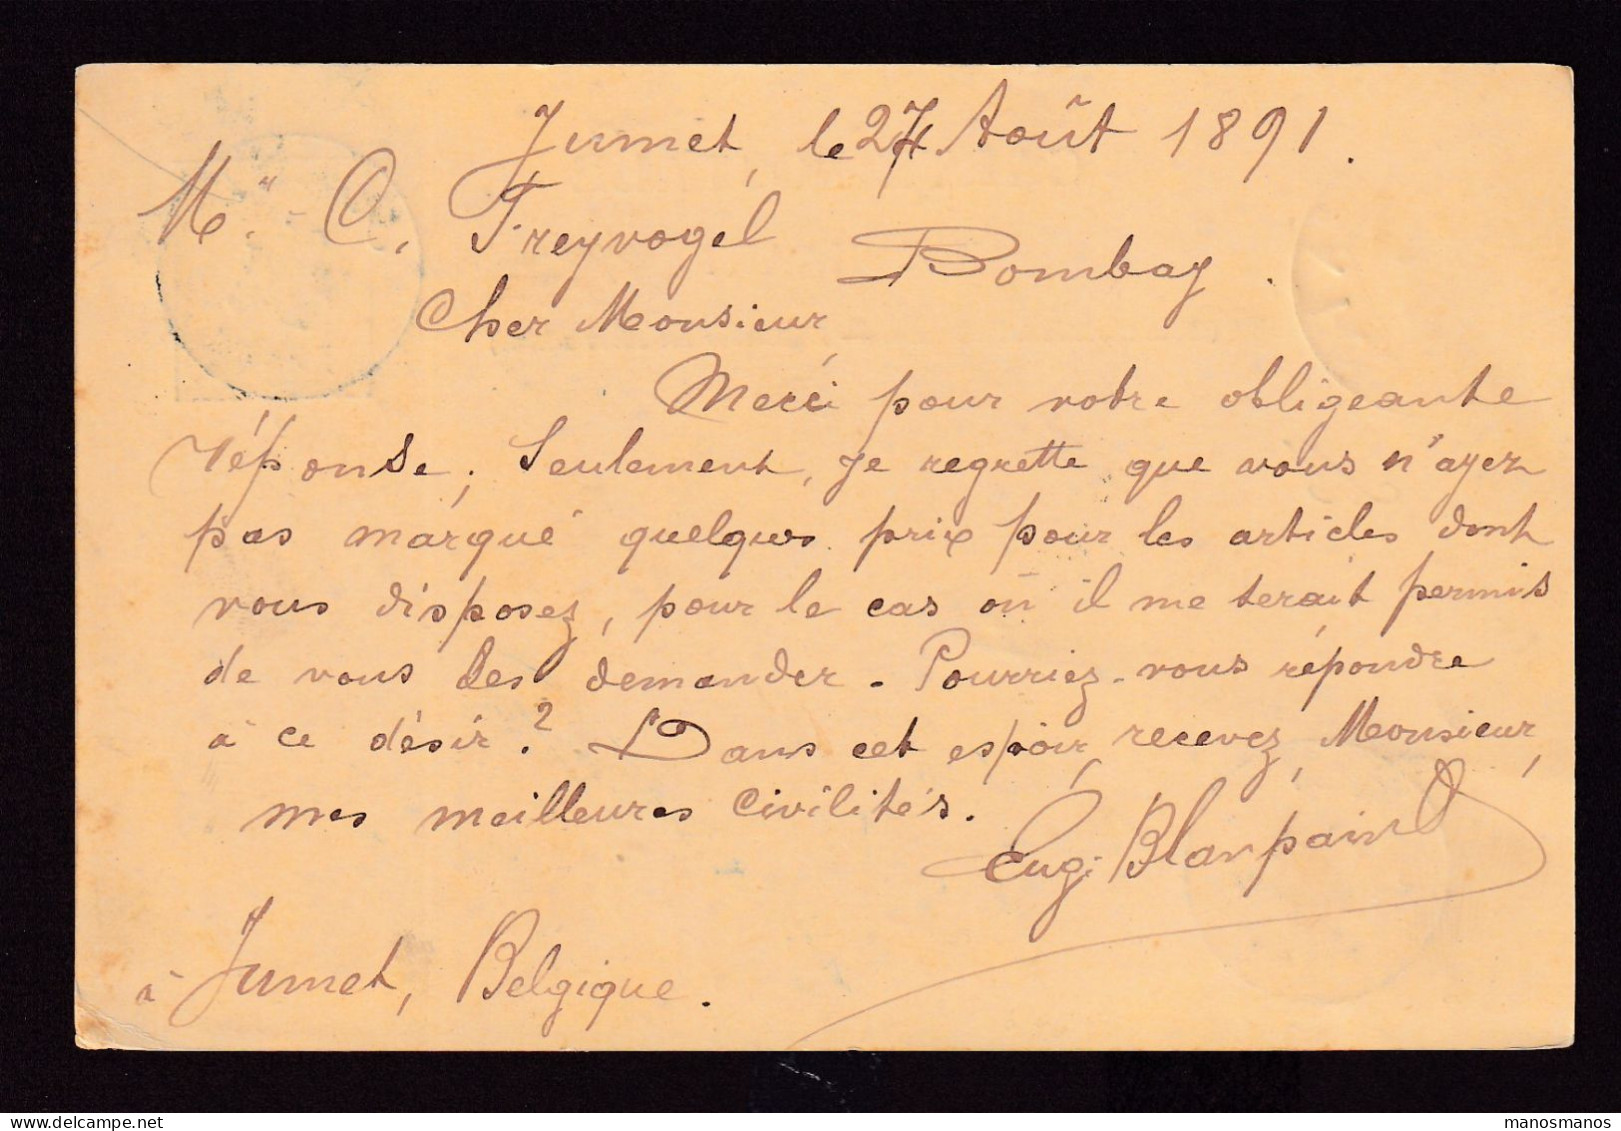 Jumet, le 27 Août 1891.
Mr. C. Freyvogel
Bombay.
Cher Monsieur
Merci pour votre obligeante
réponse; Seulement, je regrette que vous n'ayez
pas marqué quelques prix pour les articles dont
vous disposez, pour le cas où il me serait permis
de vous les demander. Pourriez-vous répondre
à ce désir? Dans cet espoir, recevez, Monsieur,
mes meilleures civilités.
Eug. Blanpain
à Jumet, Belgique.
manosmanos